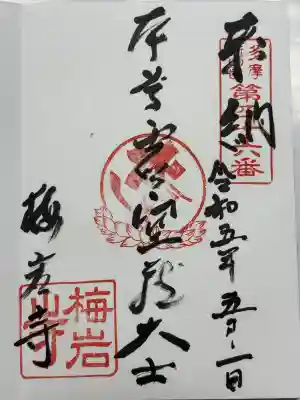 奉納
多摩
第四十六番
令和五年五月一日
本尊虚空蔵大士
梅岩寺
梅岩
山寺